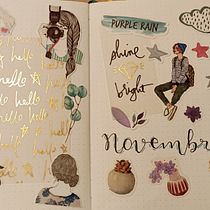 hello
hello
hello
hello
hello
hello
hello
PURPLE RAIN
shine
bright
Novembre